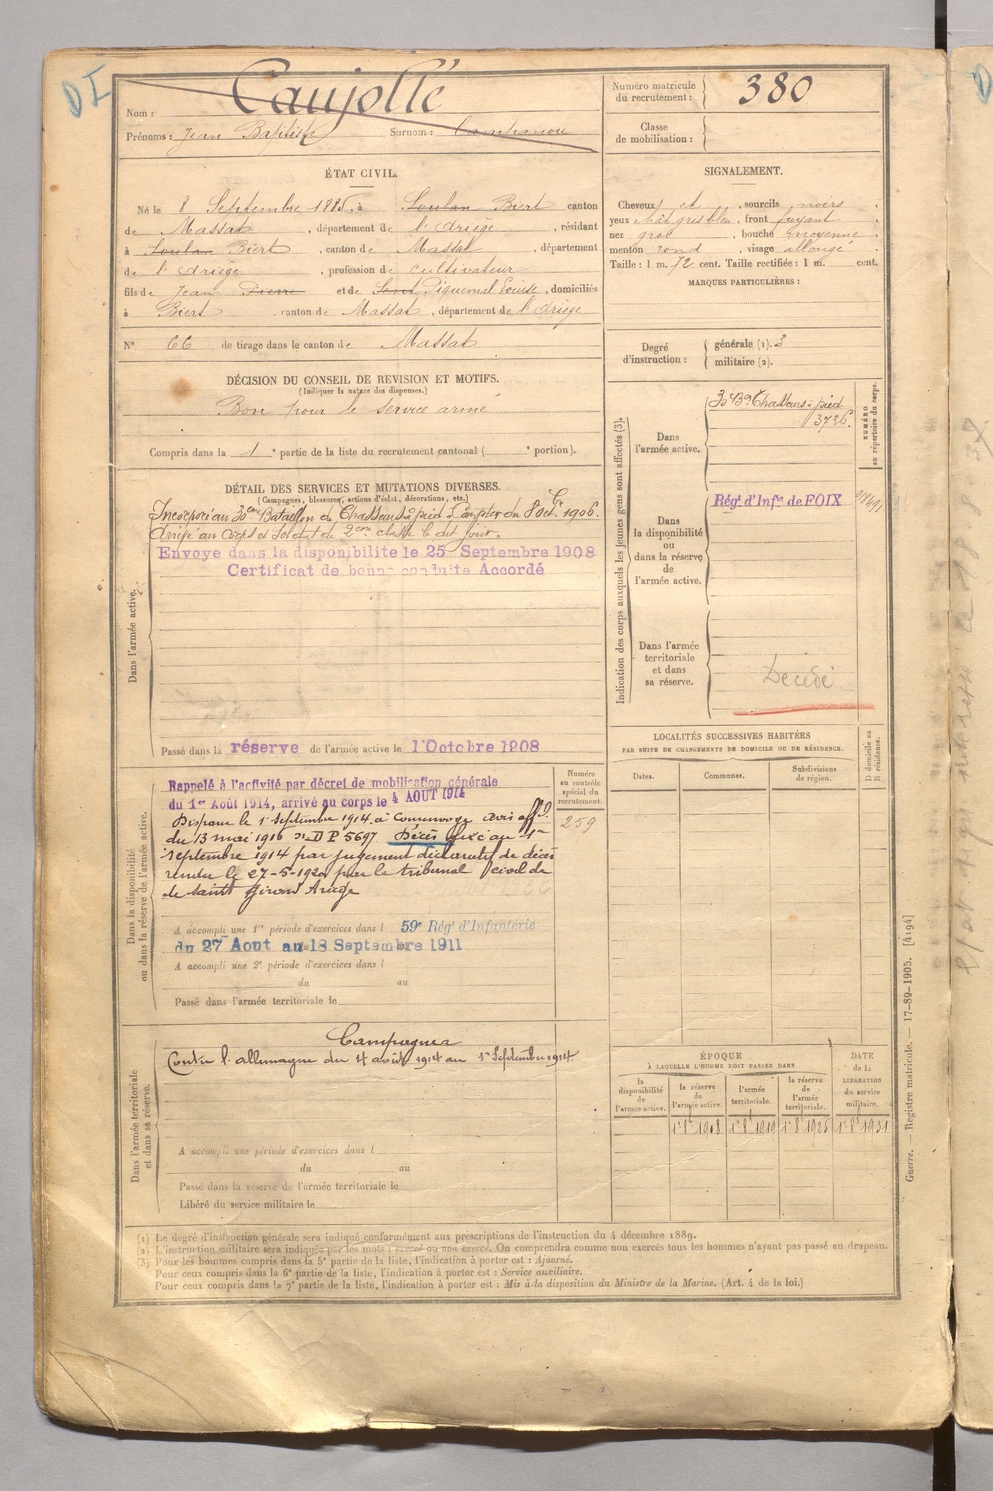 DI
Nom : Caujolle
Prénoms : Jean Baptiste Surnom : Campanou
Numéro matricule du recrutement : 380
Classe de mobilisation :
ÉTAT CIVIL.
Né le 8 Septembre 1885, à Soulan Biert canton
de Massat, département de l'Ariège, résidant
à Soulan Biert, canton de Massat, département
de l'Ariège, profession de cultivateur
fils de Jean Pierre et de Piquemal Louise, domiciliés
à Biert, canton de Massat, département de l'Ariège
N° 66 de tirage dans le canton de Massat
SIGNALEMENT.
Cheveux et, sourcils noirs,
yeux chât gris bleu, front fuyant,
nez gros, bouche moyenne,
menton rond, visage allongé
Taille : 1 m. 72 cent. Taille rectifiée : 1 m. cent.
MARQUES PARTICULIÈRES :
Degré d'instruction : générale (1). 3
militaire (2).
DÉCISION DU CONSEIL DE REVISION ET MOTIFS.
(Indiquer la nature des dispenses.)
Bon pour le service armé
Compris dans la 1e partie de la liste du recrutement cantonal ( e portion).
DÉTAIL DES SERVICES ET MUTATIONS DIVERSES.
(Campagnes, blessures, actions d'éclat, décorations, etc.)
Dans l'armée active.
Incorporé au 30eme Bataillon de Chasseurs à pied à compter du 8 Oct. 1906.
Arrivé au corps et soldat de 2eme classe le dit jour.
Envoyé dans la disponibilité le 25 Septembre 1908
Certificat de bonne conduite Accordé
Passé dans la réserve de l'armée active le 1 Octobre 1908
Indication des corps auxquels les jeunes gens sont affectés (3).
NUMÉRO au répertoire du corps.
Dans l'armée active.
30 Bon Chasseurs à pied
3726.
Dans la disponibilité ou dans la réserve de l'armée active.
Régt d'Infie de FOIX
Dans l'armée territoriale et dans sa réserve.
Décédé
Dans la disponibilité ou dans la réserve de l'armée active.
Rappelé à l'activité par décret de mobilisation générale
du 1er Août 1914, arrivé au corps le 4 AOUT 1914
Disparu le 1 Septembre 1914 à avis off.
du 13 mai 1916 n° D P 5697. Décès fixé au 1er
septembre 1914 par jugement déclaratif de décès
rendu le 27-5-1920 par le tribunal civil de
de Saint Girons Ariège
Numéro au contrôle spécial du recrutement.
259
A accompli une 1re période d'exercices dans l 59e Régt d'Infanterie
du 27 Aout au 18 Septembre 1911
A accompli une 2e période d'exercices dans l
du au
Passé dans l'armée territoriale le
LOCALITÉS SUCCESSIVES HABITÉES
PAR SUITE DE CHANGEMENTS DE DOMICILE OU DE RÉSIDENCE.
D domicile ou R résidence.
Dates. Communes. Subdivisions de région.
Dans l'armée territoriale et dans sa réserve.
Campagnes
Contre l'allemagne du 4 août 1914 au 1er Septembre 1914
A accompli une période d'exercices dans l
du au
Passé dans la réserve de l'armée territoriale le
Libéré du service militaire le
ÉPOQUE
À LAQUELLE L'HOMME DOIT PASSER DANS
DATE de la LIBÉRATION du service militaire.
la disponibilité de l'armée active. la réserve de l'armée active. l'armée territoriale. la réserve de l'armée territoriale.
1 8bre 1908 1 8bre 1919 1 8bre 1925 1 8bre 1931
Guerre. — Registre matricule. — 17-89-1905. [4194]
(1) Le degré d'instruction générale sera indiqué conformément aux prescriptions de l'instruction du 4 décembre 1889.
(2) L'instruction militaire sera indiquée par les mots : exercé ou non exercé. On comprendra comme non exercés tous les hommes n'ayant pas passé au drapeau.
(3) Pour les hommes compris dans la 5e partie de la liste, l'indication à porter est : Ajourné.
Pour ceux compris dans la 6e partie de la liste, l'indication à porter est : Service auxiliaire.
Pour ceux compris dans la 7e partie de la liste, l'indication à porter est : Mis à la disposition du Ministre de la Marine. (Art. 4 de la loi.)